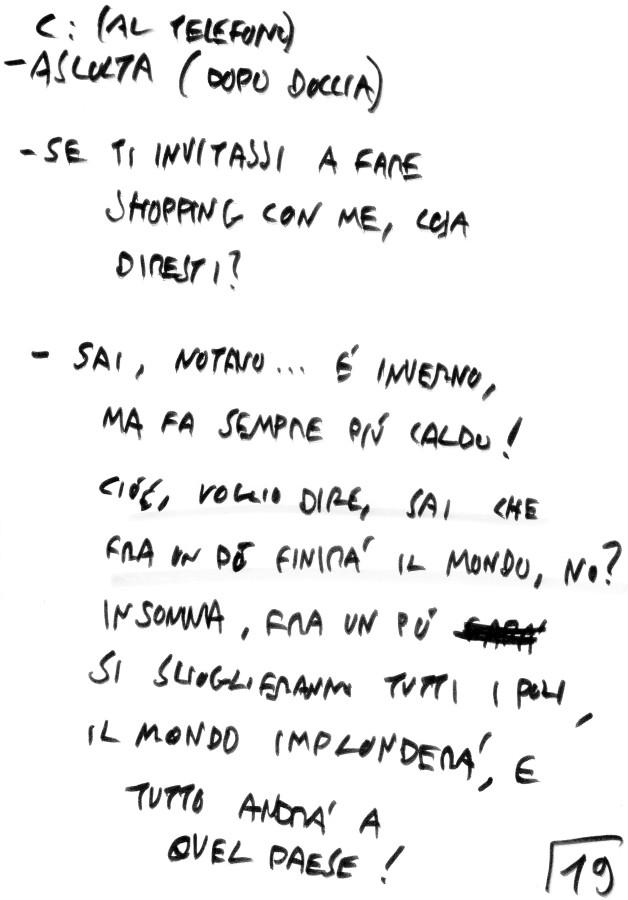 C: (AL TELEFONO)
- ASCOLTA (DOPO DOCCIA)
- SE TI INVITASSI A FARE
SHOPPING CON ME, COSA
DIRESTI?
- SAI, NOTAVO... É INVERNO,
MA FA SEMPRE PIÚ CALDO!
CIOÉ, VOGLIO DIRE, SAI CHE
FRA UN PÓ FINIRA' IL MONDO, NO?
INSOMMA, FRA UN PO'
SI SCIOGLIERANNO TUTTI I POLI,
IL MONDO IMPLODERA', E
TUTTO ANDRA' A
QUEL PAESE!
19